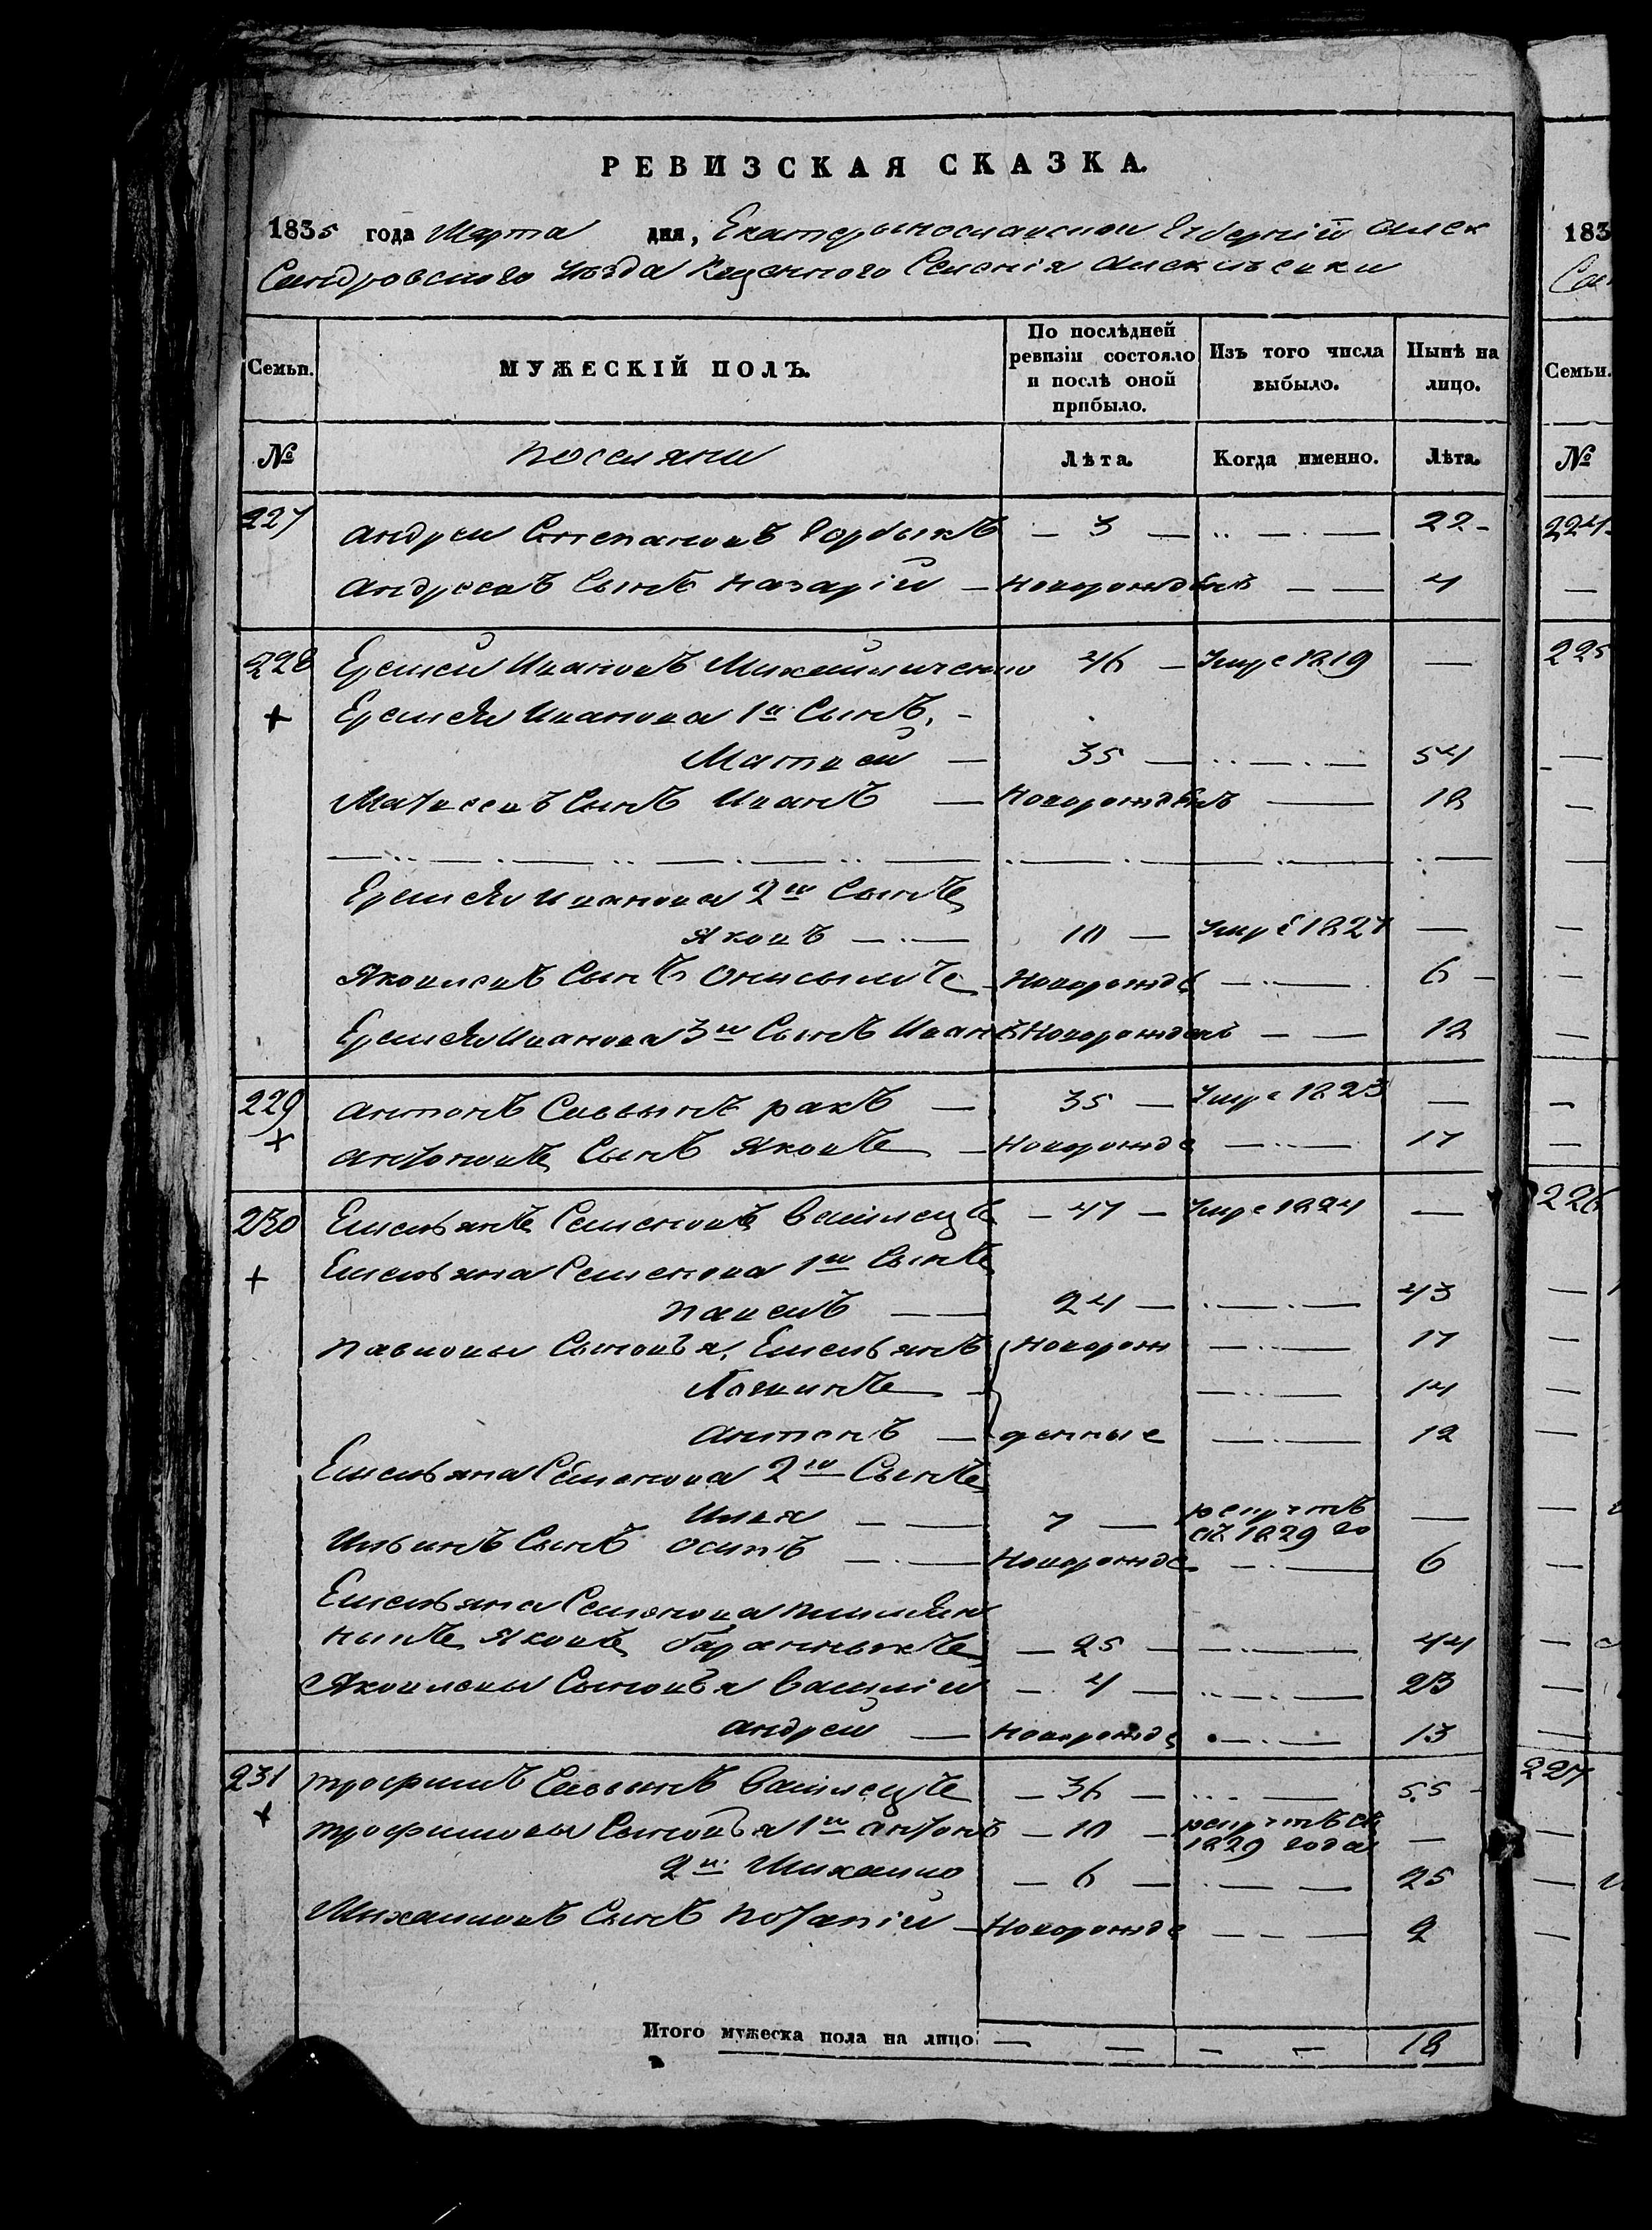 РЕВИЗСКАЯ СКАЗКА.
1835 года Марта дня, Екатеринославской Губерніи Алек
Сандровского Уезда Казенного Селенія
Семьи. МУЖЕСКІЙ ПОЛЪ. По послѣдней ревизіи состояло и послѣ оной прибыло. Изъ того числа выбыло. Нынѣ на лицо.
№ поселяни Лѣта. Когда именно. Лѣта.
227 Андрей Степановъ Горбыкъ — 3 — 22
Андреевъ Сынъ Назарій — Новорожденъ — 4
228 Еремей Ивановъ Михайличенко 46 — Умре 1819 —
Еремея Иванова 1й Сынъ,
Матвей — 35 — 54
Матвеевъ Сынъ Иванъ — Новорожденъ — 18
Еремея Иванова 2й Сынъ
Яковъ — 10 — Умре 1827 —
Яковлевъ Сынъ Онисымъ Новорожде — 6
Еремея Иванова 3й Сынъ Иванъ Новорожденъ — 18
229 Антонъ Саввинъ ракъ — 35 — Умре 1823 —
Антоновъ Сынъ Яковъ — Новорожде — 17
230 Емельянъ Семеновъ Василецъ — 47 — Умре 1824 —
Емельяна Семенова 1й Сынъ
Павелъ — 24 — 43
Павловы Сыновья, Емельянъ Новорож — 17
Логвинъ — 14
Антонъ — денные — 12
Емельяна Семенова 2й Сынъ
Илья — 7 — рекрутъ —
съ 1829 го
Ильинъ Сынъ Осипъ — Новорожде — 6
Емельяна Семенова племян
ныкъ Яковъ — 25 — 44
Яковлевы Сыновья Василій — 4 — 23
Андрей — Новорожде — 13
231 Трофимъ Саввинъ Василецъ — 36 — 55
Трофимовы Сыновья 1й Антонъ — 10 — рекрутъ съ
1829 года —
2й Михайло — 6 — 25
Михайловъ Сынъ Потапій — Новорожде — 2
Итого мужеска пола на лицо — — — — 18
183
Семьи.
№
224
225
226
227